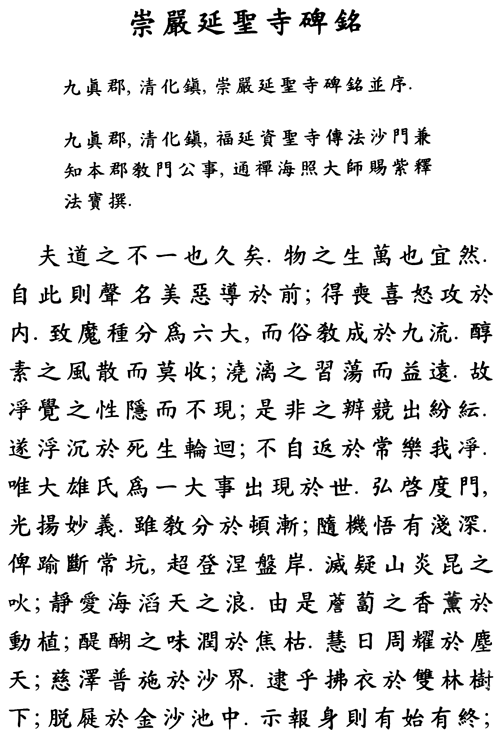 崇嚴延聖寺碑銘
九眞郡, 清化鎭, 崇嚴延聖寺碑銘並序.
九眞郡, 清化鎭, 福延資聖寺傳法沙門兼
知本郡敎門公事, 通禪海照大師賜紫釋
法寶撰.
夫道之不一也久矣. 物之生萬也宜然.
自此則聲名美惡導於前; 得喪喜怒攻於
内. 致魔種分爲六大, 而俗敎成於九流. 醇
素之風散而莫收; 澆漓之習蕩而益遠. 故
凈覺之性隱而不現; 是非之辯競出紛紜.
遂浮沉於死生輪迴; 不自返於常樂我凈.
唯大雄氏爲一大事出現於世. 弘啓度門,
光揚妙義. 雖敎分於頓漸; 隨機悟有淺深.
俾踰斷常坑, 超登涅盤岸. 滅疑山炎昆之
吙; 靜愛海滔天之浪. 由是薝蔔之香薰於
動植; 醍醐之味潤於焦枯. 慧日周耀於塵
天; 慈澤普施於沙界. 逮乎拂衣於雙林樹
下; 脱屣於金沙池中. 示報身則有始有終;